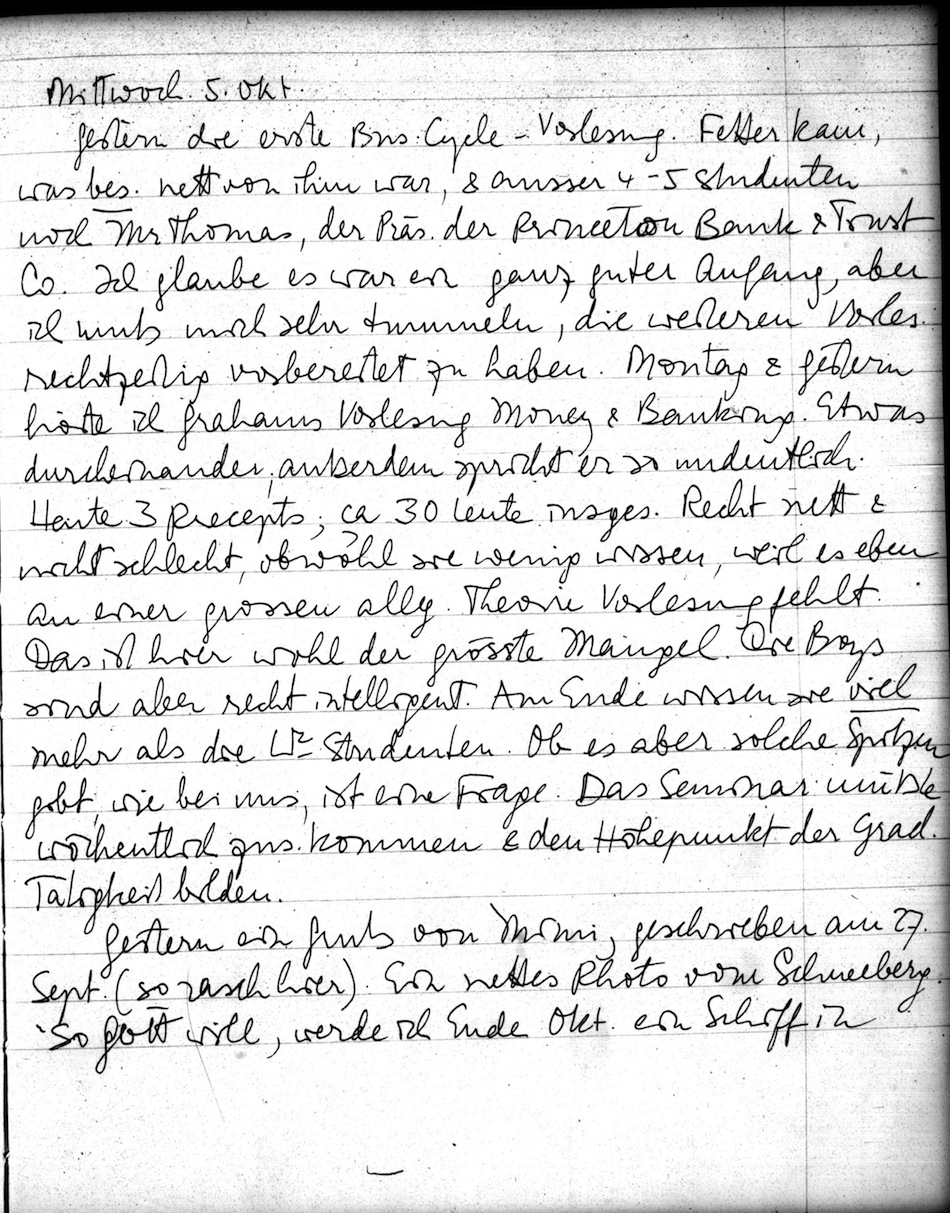 Mittwoch. 5. Okt.
Gestern die erste Bus. Cycle - Vorlesung. Fetter kam,
was bes. nett von ihm war, & ausser 4-5 Studenten
noch Mr Thomas, der Präs. der Princeton Bank & Trust
Co. Ich glaube es war ein ganz guter Anfang, aber
ich muß mich sehr tummeln, die weiteren Vorles.
rechtzeitig vorbereitet zu haben. Montag & gestern
hörte ich Grahams Vorlesung Money & Banking. Etwas
durcheinander, außerdem spricht er so undeutlich.
Heute 3 Precepts; ca 30 Leute insges. Recht nett &
nicht schlecht, obwohl sie wenig wissen, weil es eben
an einer grossen allg. Theorie Vorlesung fehlt.
Das ist hier wohl der grösste Mangel. Die Boys
sind aber recht intelligent. Am Ende wissen sie viel
mehr als die Wr Studenten. Ob es aber solche Spitzen
gibt, wie bei uns, ist eine Frage. Das Seminar müßte
wöchentlich zus. kommen & den Höhepunkt der Grad.
Tätigkeit bilden.
Gestern ein Gruß von Mimi, geschrieben am 27.
Sept. (so rasch hier). Ein nettes Photo vom Schneeberg.
So Gott will, werde ich Ende Okt. ein Schiff in